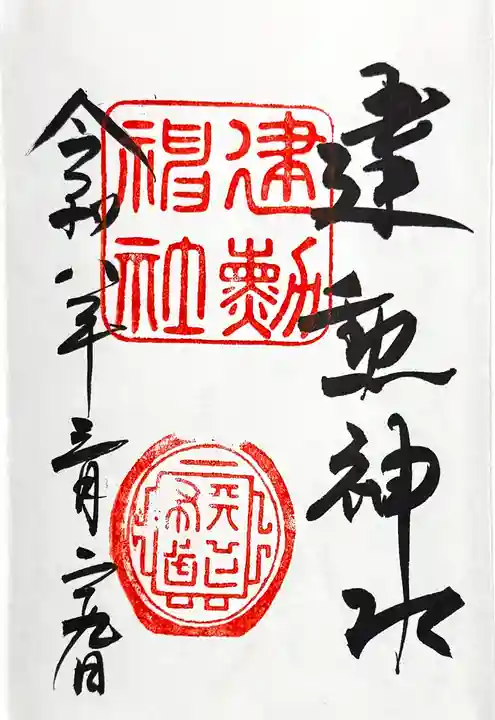 建勲神社
建勳
神社
令和八年三月二十九日